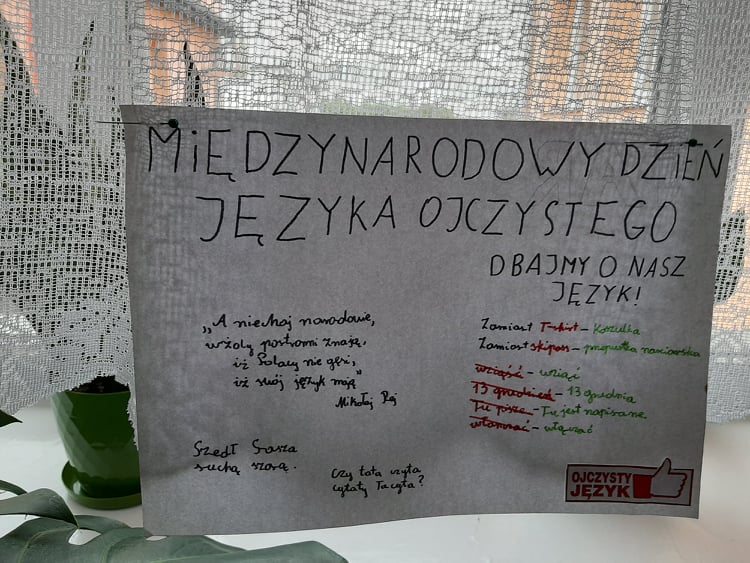 MIĘDZYNARODOWY DZIEŃ
JĘZYKA OJCZYSTEGO
DBAJMY O NASZ
JĘZYK!
„A niechaj narodowie,
wżdy postronni znają,
iż Polacy nie gęsi,
iż swój język mają"
Mikołaj Rej
Zamiast T-shirt – Koszulka
Zamiast skipass – przepustka narciarska
wziąść – wziąć
13 grudzień – 13 grudnia
Tu pisze – Tu jest napisane
włanczać – włączać
Szedł Sasza
suchą szosą.
Czy tata czyta
cytaty Tacyta?
OJCZYSTY
JĘZYK